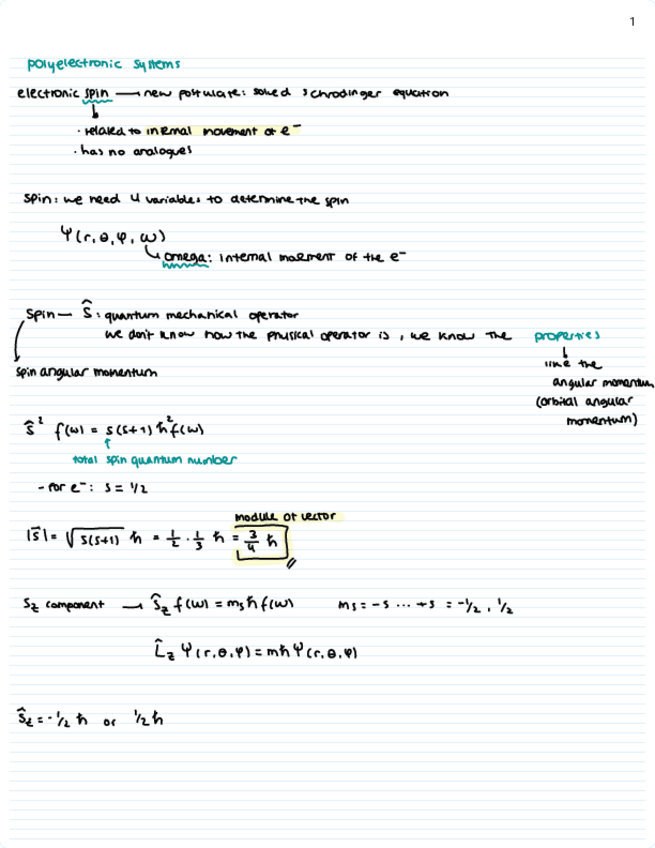 1
polyelectronic systems
electronic spin → new postulate: solved schrodinger equation
· related to internal movement of e⁻
· has no analogues
spin: we need 4 variables to determine the spin
Ψ(r, θ, φ, ω)
omega: internal movement of the e⁻
spin — Ŝ: quantum mechanical operator
we don't know how the physical operator is, we know the properties
like the
spin angular momentum
angular momentum
(orbital angular
momentum)
Ŝ² f(ω) = s(s+1) ħ² f(ω)
total spin quantum number
- for e⁻: s = 1/2
module of vector
|s⃗| = √s(s+1) ħ = 1/2 · 1/3 ħ = 3/4 ħ
Sz component → Ŝz f(ω) = ms ħ f(ω) ms = -s ... +s = -1/2, 1/2
L̂z Ψ(r, θ, φ) = mħ Ψ(r, θ, φ)
Ŝz = -1/2 ħ or 1/2 ħ